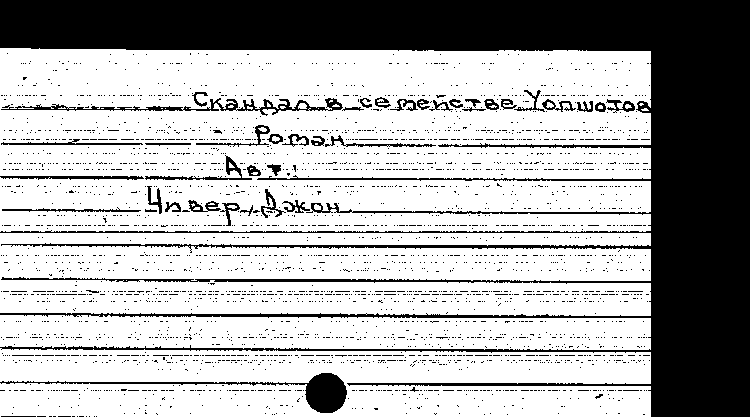 Скандал в семействе Уопшотов
Роман
Авт.:
Чивер, Джон